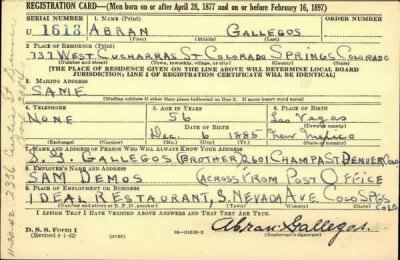 REGISTRATION CARD—(Men born on or after April 28, 1877 and on or before February 16, 1897)
SERIAL NUMBER 1. NAME (Print)
U 1613 ABRAN GALLEGOS
(First) (Middle) (Last)
2. PLACE OF RESIDENCE (Print)
737 WEST CUCHARRAS ST COLORADO SPRINGS COLORADO
(Number and street) (Town, township, village, or city) (County) (State)
[THE PLACE OF RESIDENCE GIVEN ON THE LINE ABOVE WILL DETERMINE LOCAL BOARD
JURISDICTION; LINE 2 OF REGISTRATION CERTIFICATE WILL BE IDENTICAL]
3. MAILING ADDRESS
SAME
[Mailing address if other than place indicated on line 2. If same insert word same]
4. TELEPHONE 5. AGE IN YEARS 6. PLACE OF BIRTH
NONE 56 Las Vegas
DATE OF BIRTH (Town or county)
Dec. 6 1885 New Mexico
(Exchange) (Number) (Mo.) (Day) (Yr.) (State or country)
7. NAME AND ADDRESS OF PERSON WHO WILL ALWAYS KNOW YOUR ADDRESS
GALLEGOS (BROTHER) 2601 CHAMPA ST DENVER COLO
8. EMPLOYER'S NAME AND ADDRESS
SAM DEMOS (ACROSS FROM POST OFFICE
9. PLACE OF EMPLOYMENT OR BUSINESS
IDEAL RESTAURANT, S. NEVADA AVE COLO SPGS
COLO
(Number and street or R. F. D. number) (Town) (County) (State)
I AFFIRM THAT I HAVE VERIFIED ABOVE ANSWERS AND THAT THEY ARE TRUE.
D. S. S. Form 1
(Revised 4-1-42) (over) 16—21630-2 Abran Gallegos.
(Registrant's signature)
11-30-42 2336